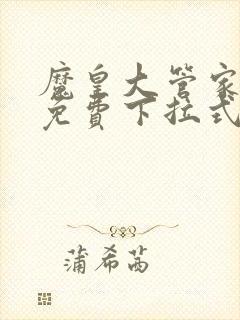 魔皇大管家
免費下拉式
蒲希茜